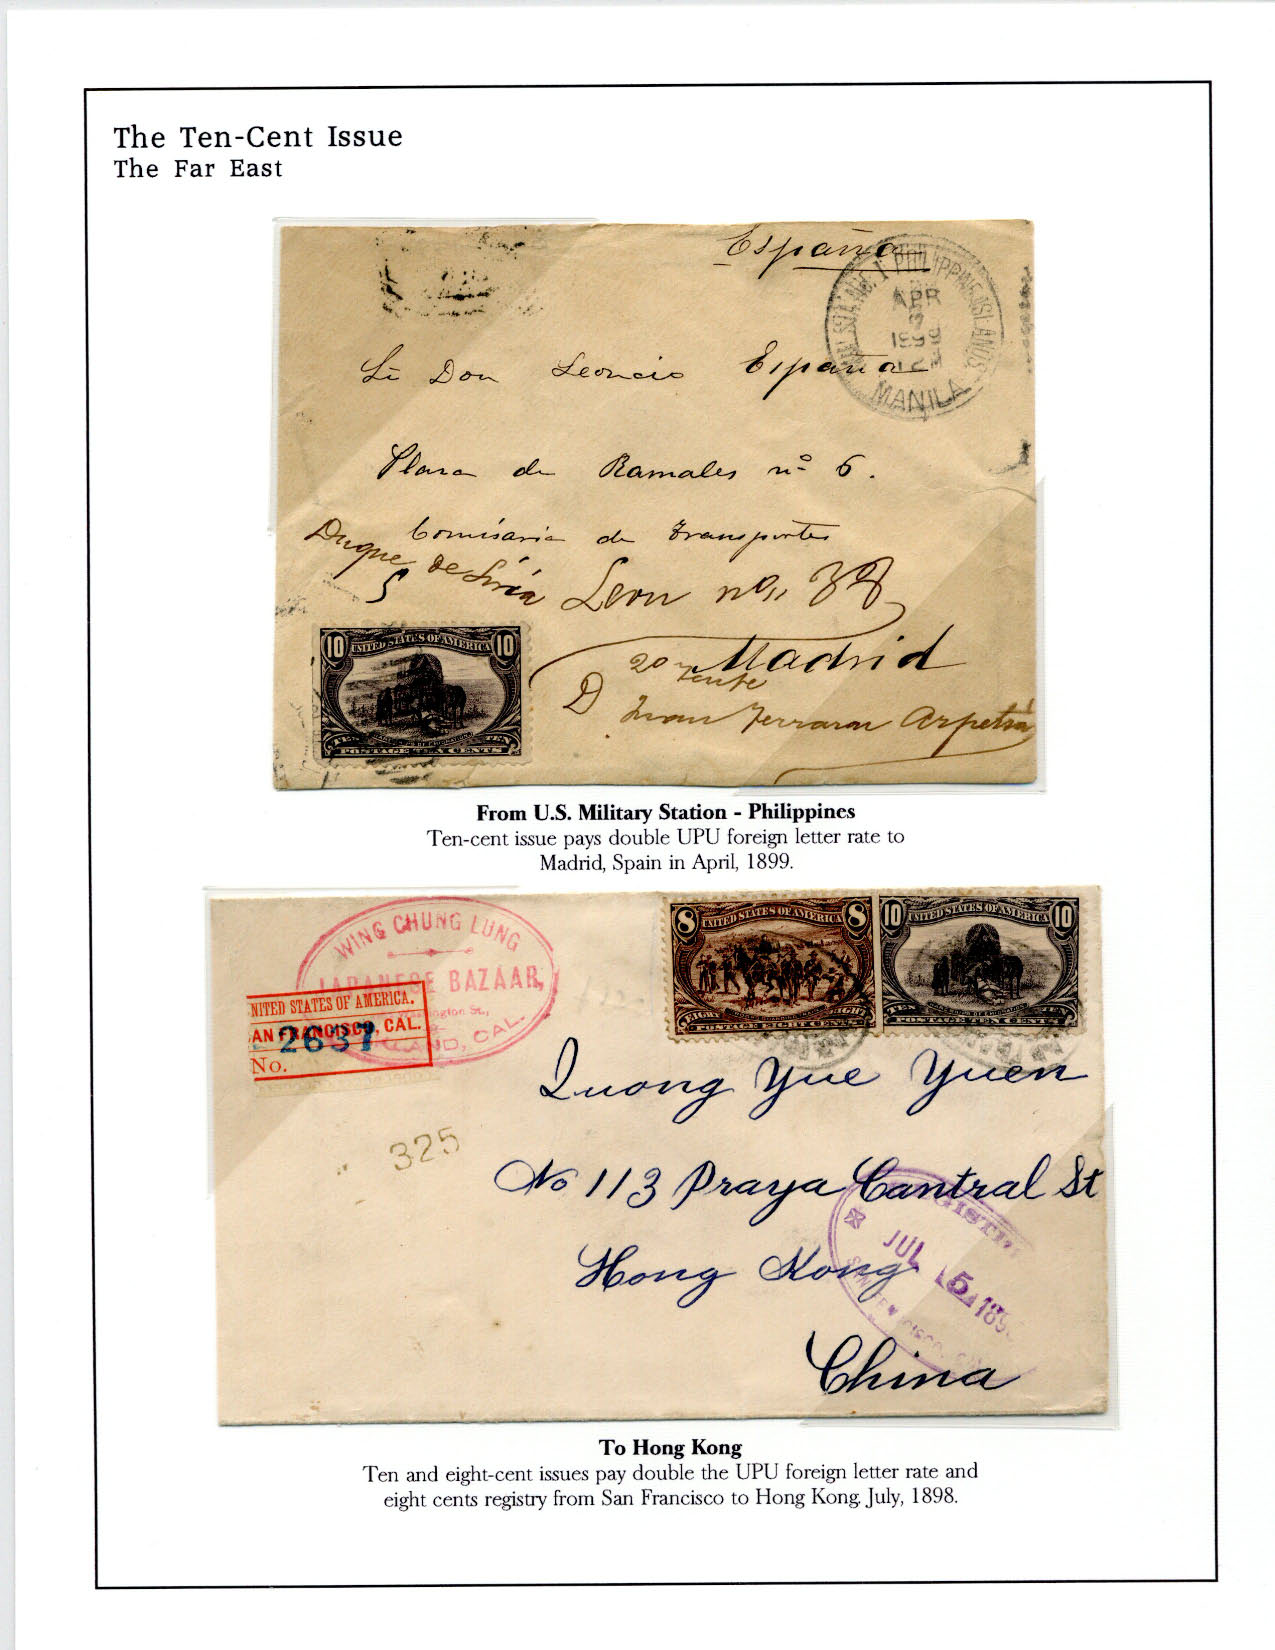 The Ten-Cent Issue
The Far East
España
MIL. STA. NO. 1 PHILIPPINE ISLANDS
APR
1899
12 M
MANILA
Don Leoncio España
Plaza de Ramales nº 6.
Comisaria de Transportes
Duque de
5
Leon no,, 38
Madrid
D Juan Arpetia
10 UNITED STATES OF AMERICA 10
TEN TEN
POSTAGE TEN CENTS
From U.S. Military Station - Philippines
Ten-cent issue pays double UPU foreign letter rate to
Madrid, Spain in April, 1899.
WING CHUNG LUNG
JAPANESE BAZAAR,
ington St.,
LAND, CAL.
NITED STATES OF AMERICA.
AN FRANCISCO, CAL.
2637
No.
8 UNITED STATES OF AMERICA 8
EIGHT EIGHT
POSTAGE EIGHT CENTS
10 UNITED STATES OF AMERICA 10
TEN TEN
POSTAGE TEN CENTS
325
Quong Yue Yuen
No 113 Praya Cantral St
Hong Kong
China
REGISTER
JUL 15 189
SAN FRANCISCO, CAL
To Hong Kong
Ten and eight-cent issues pay double the UPU foreign letter rate and
eight cents registry from San Francisco to Hong Kong, July, 1898.